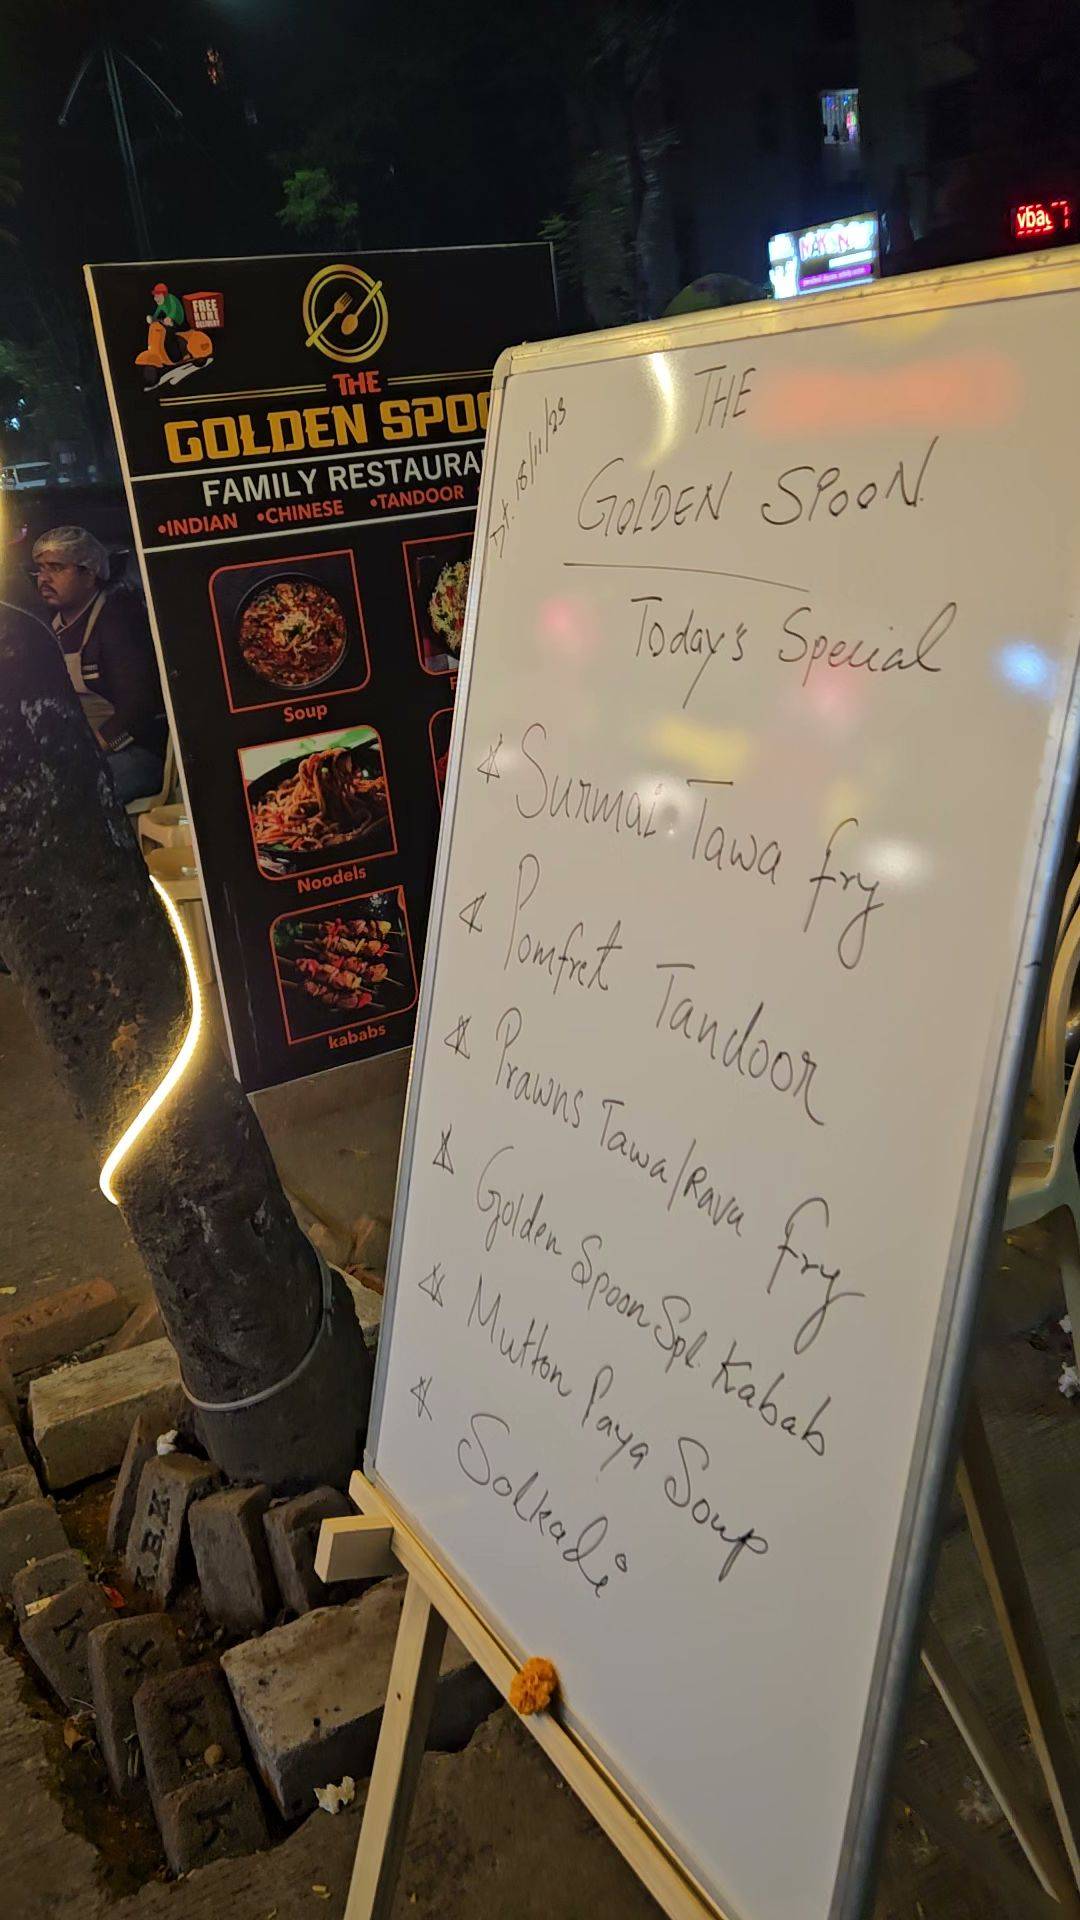 FREE
HOME
DELIVERY
THE
GOLDEN SPOO
FAMILY RESTAURA
•INDIAN •CHINESE •TANDOOR
Soup
Noodels
kababs
THE
GOLDEN SPOON
Today's Special
Surmai Tawa fry
Pomfret Tandoor
Prawns Tawa/Rava fry
Golden Spoon Spl. Kabab
Mutton Paya Soup
Solkadi